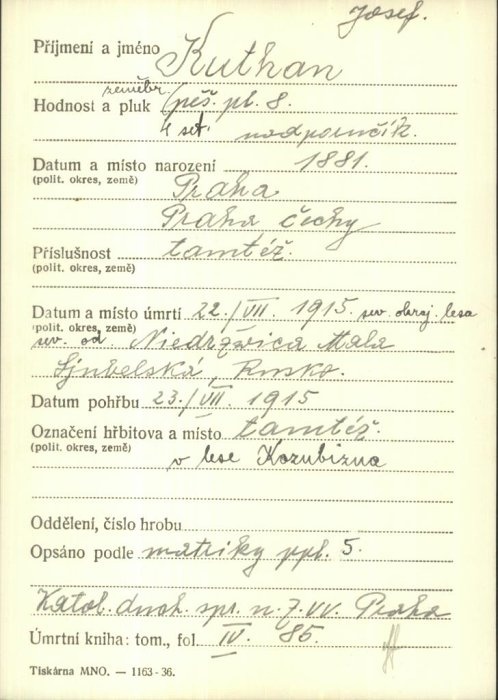 Josef.
Příjmení a jméno Kuthan
zeměbr.
Hodnost a pluk (pěš. pl. 8.
4 set. nadporučík.
Datum a místo narození 1881.
(polit. okres, země) Praha
Praha Čechy
Příslušnost tamtéž.
(polit. okres, země)
Datum a místo úmrtí 22./VII. 1915 sev. okraj. lesa
(polit. okres, země)
sev. od Niedrzwica Mala
Ljubelská, Rusko.
Datum pohřbu 23./VII. 1915
Označení hřbitova a místo tamtéž.
(polit. okres, země)
v lese Kozubizna
Oddělení, číslo hrobu
Opsáno podle matriky ppl. 5.
Katol. duch. spr. n. z. VV. Praha
Úmrtní kniha: tom., fol. IV. 85.
Tiskárna MNO. — 1163-36.